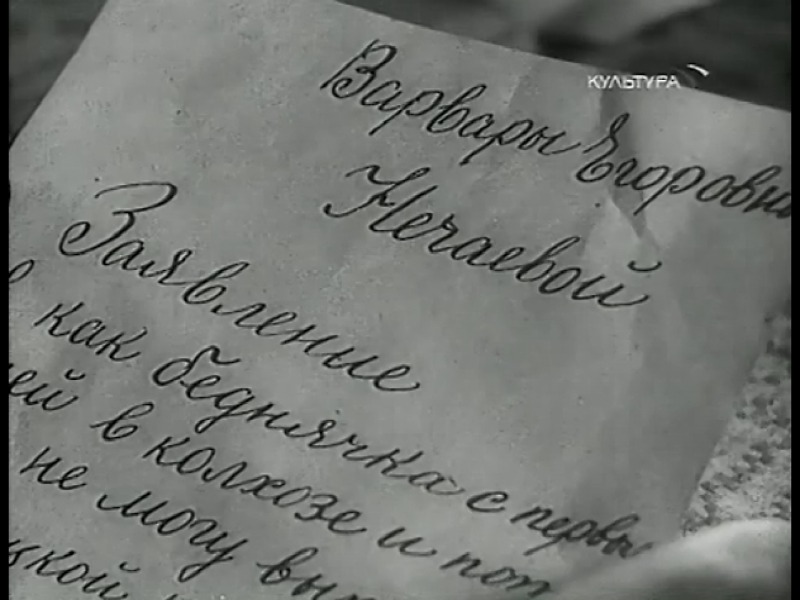 КУЛЬТУРА
Варвары Егоровн
Нечаевой
Заявление
как беднячка с первы
ей в колхозе и поп
не могу вы
цкой